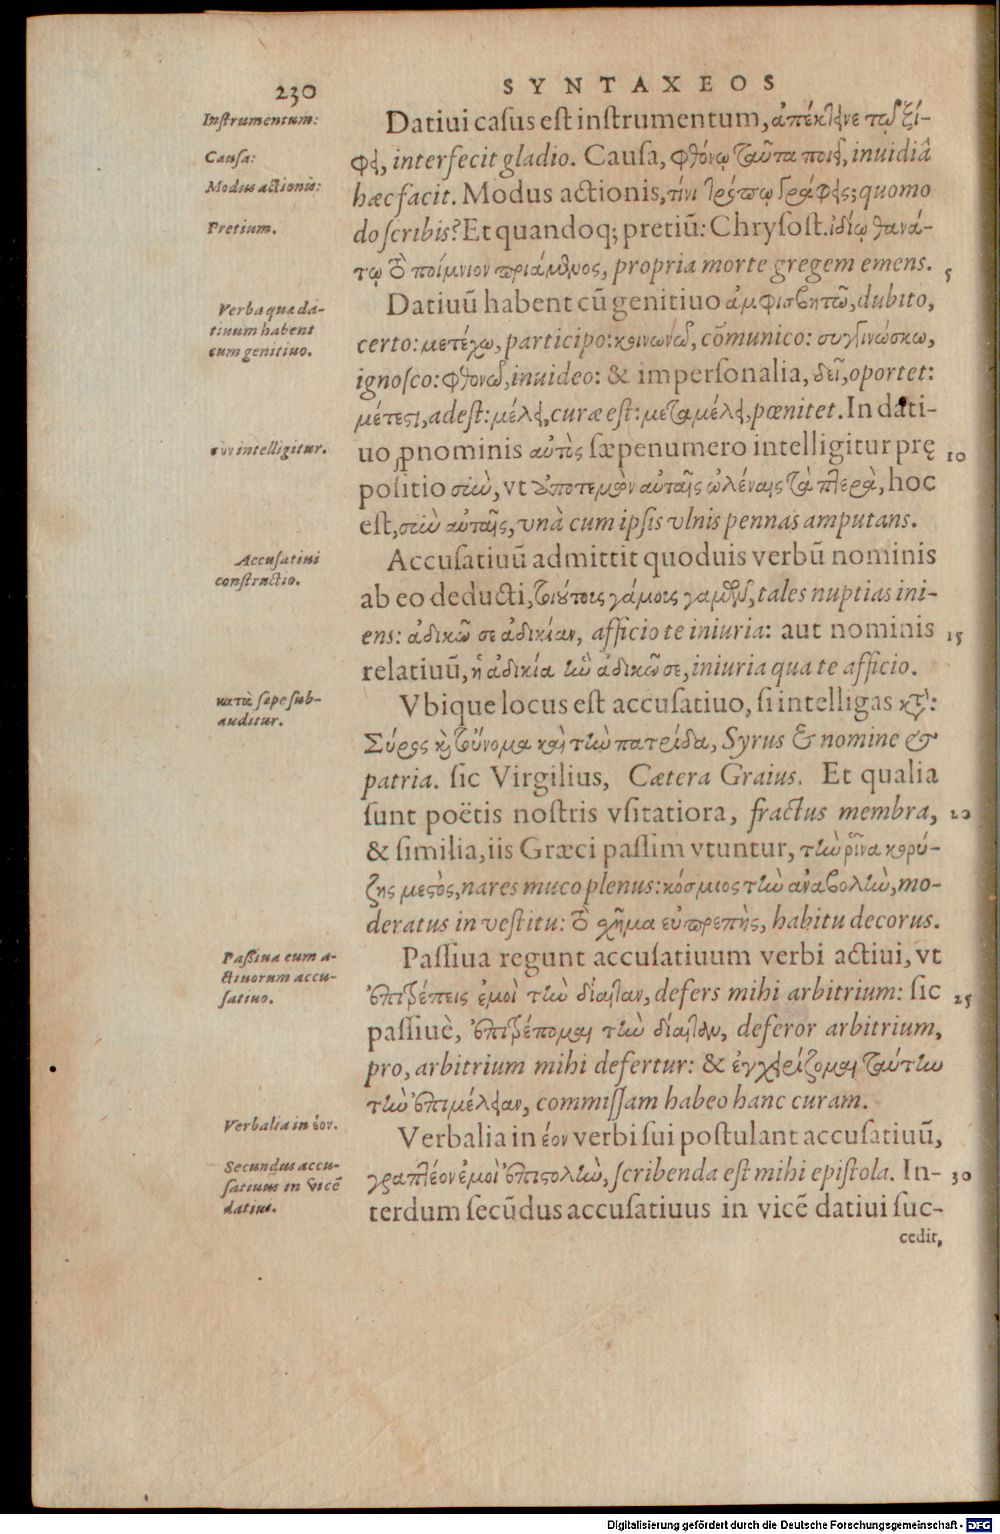 230
SYNTAXEOS
Instrumentum:
Datiui casus est instrumentum, ἀπέκτεινε τῷ ξί-
Causa:
φει, interfecit gladio. Causa, φθόνῳ ταῦτα ποιεῖ, inuidiâ
Modus actionis:
hæc facit. Modus actionis, τίνι τρόπῳ γράφεις; quomo
Pretium.
do scribis? Et quandoq; pretiū: Chrysost. ἰδίῳ θανά-
τῳ τὸ ποίμνιον πριάμενος, propria morte gregem emens. 5
Verba quæ da-
tiuum habent
cum genitiuo.
Datiuū habent cū genitiuo ἀμφισβητῶ, dubito,
certo: μετέχω, participo: κοινωνῶ, cōmunico: συγγινώσκω,
ignosco: φθονῶ, inuideo: & impersonalia, δεῖ, oportet:
μέτεστι, adest: μέλει, curæ est: μεταμέλει, pœnitet. In dati-
σὺν intelligitur.
uo pronominis αὐτὸς sæpenumero intelligitur prę 10
positio σὺν, vt ὑποτεμὼν αὐταῖς ὠλέναις τὰ πτερὰ, hoc
est, σὺν αὐταῖς, vnà cum ipsis vlnis pennas amputans.
Accusatiui
constructio.
Accusatiuū admittit quoduis verbū nominis
ab eo deducti, τοιούτοις γάμοις γαμεῖν, tales nuptias ini-
ens: ἀδικῶ σε ἀδικίαν, afficio te iniuria: aut nominis 15
relatiuū, ἡ ἀδικία ἣν ἀδικῶ σε, iniuria qua te afficio.
κατὰ sæpe sub-
auditur.
Vbique locus est accusatiuo, si intelligas κατὰ:
Σύρος καὶ τοὔνομα καὶ τὴν πατρίδα, Syrus & nomine &
patria. sic Virgilius, Cætera Graius. Et qualia
sunt poëtis nostris vsitatiora, fractus membra, 20
& similia, iis Græci passim vtuntur, τὴν ῥῖνα κορύ-
ζης μεστὸς, nares muco plenus: κόσμιος τὴν ἀναβολὴν, mo-
deratus in vestitu: τὸ σχῆμα εὐπρεπὴς, habitu decorus.
Passiua cum a-
ctiuorum accu-
satiuo.
Passiua regunt accusatiuum verbi actiui, vt
ἐπιτρέπεις ἐμοὶ τὴν δίαιταν, defers mihi arbitrium: sic 25
passiuè, ἐπιτρέπομαι τὴν δίαιταν, deferor arbitrium,
pro, arbitrium mihi defertur: & ἐγχειρίζομαι ταύτην
τὴν ἐπιμέλειαν, commissam habeo hanc curam.
Verbalia in έον.
Verbalia in έον verbi sui postulant accusatiuū,
Secundus accu-
satiuus in vicē
datiui.
γραπτέον ἐμοὶ ἐπιστολὴν, scribenda est mihi epistola. In- 30
terdum secūdus accusatiuus in vicē datiui suc-
cedit,
Digitalisierung gefördert durch die Deutsche Forschungsgemeinschaft - DFG